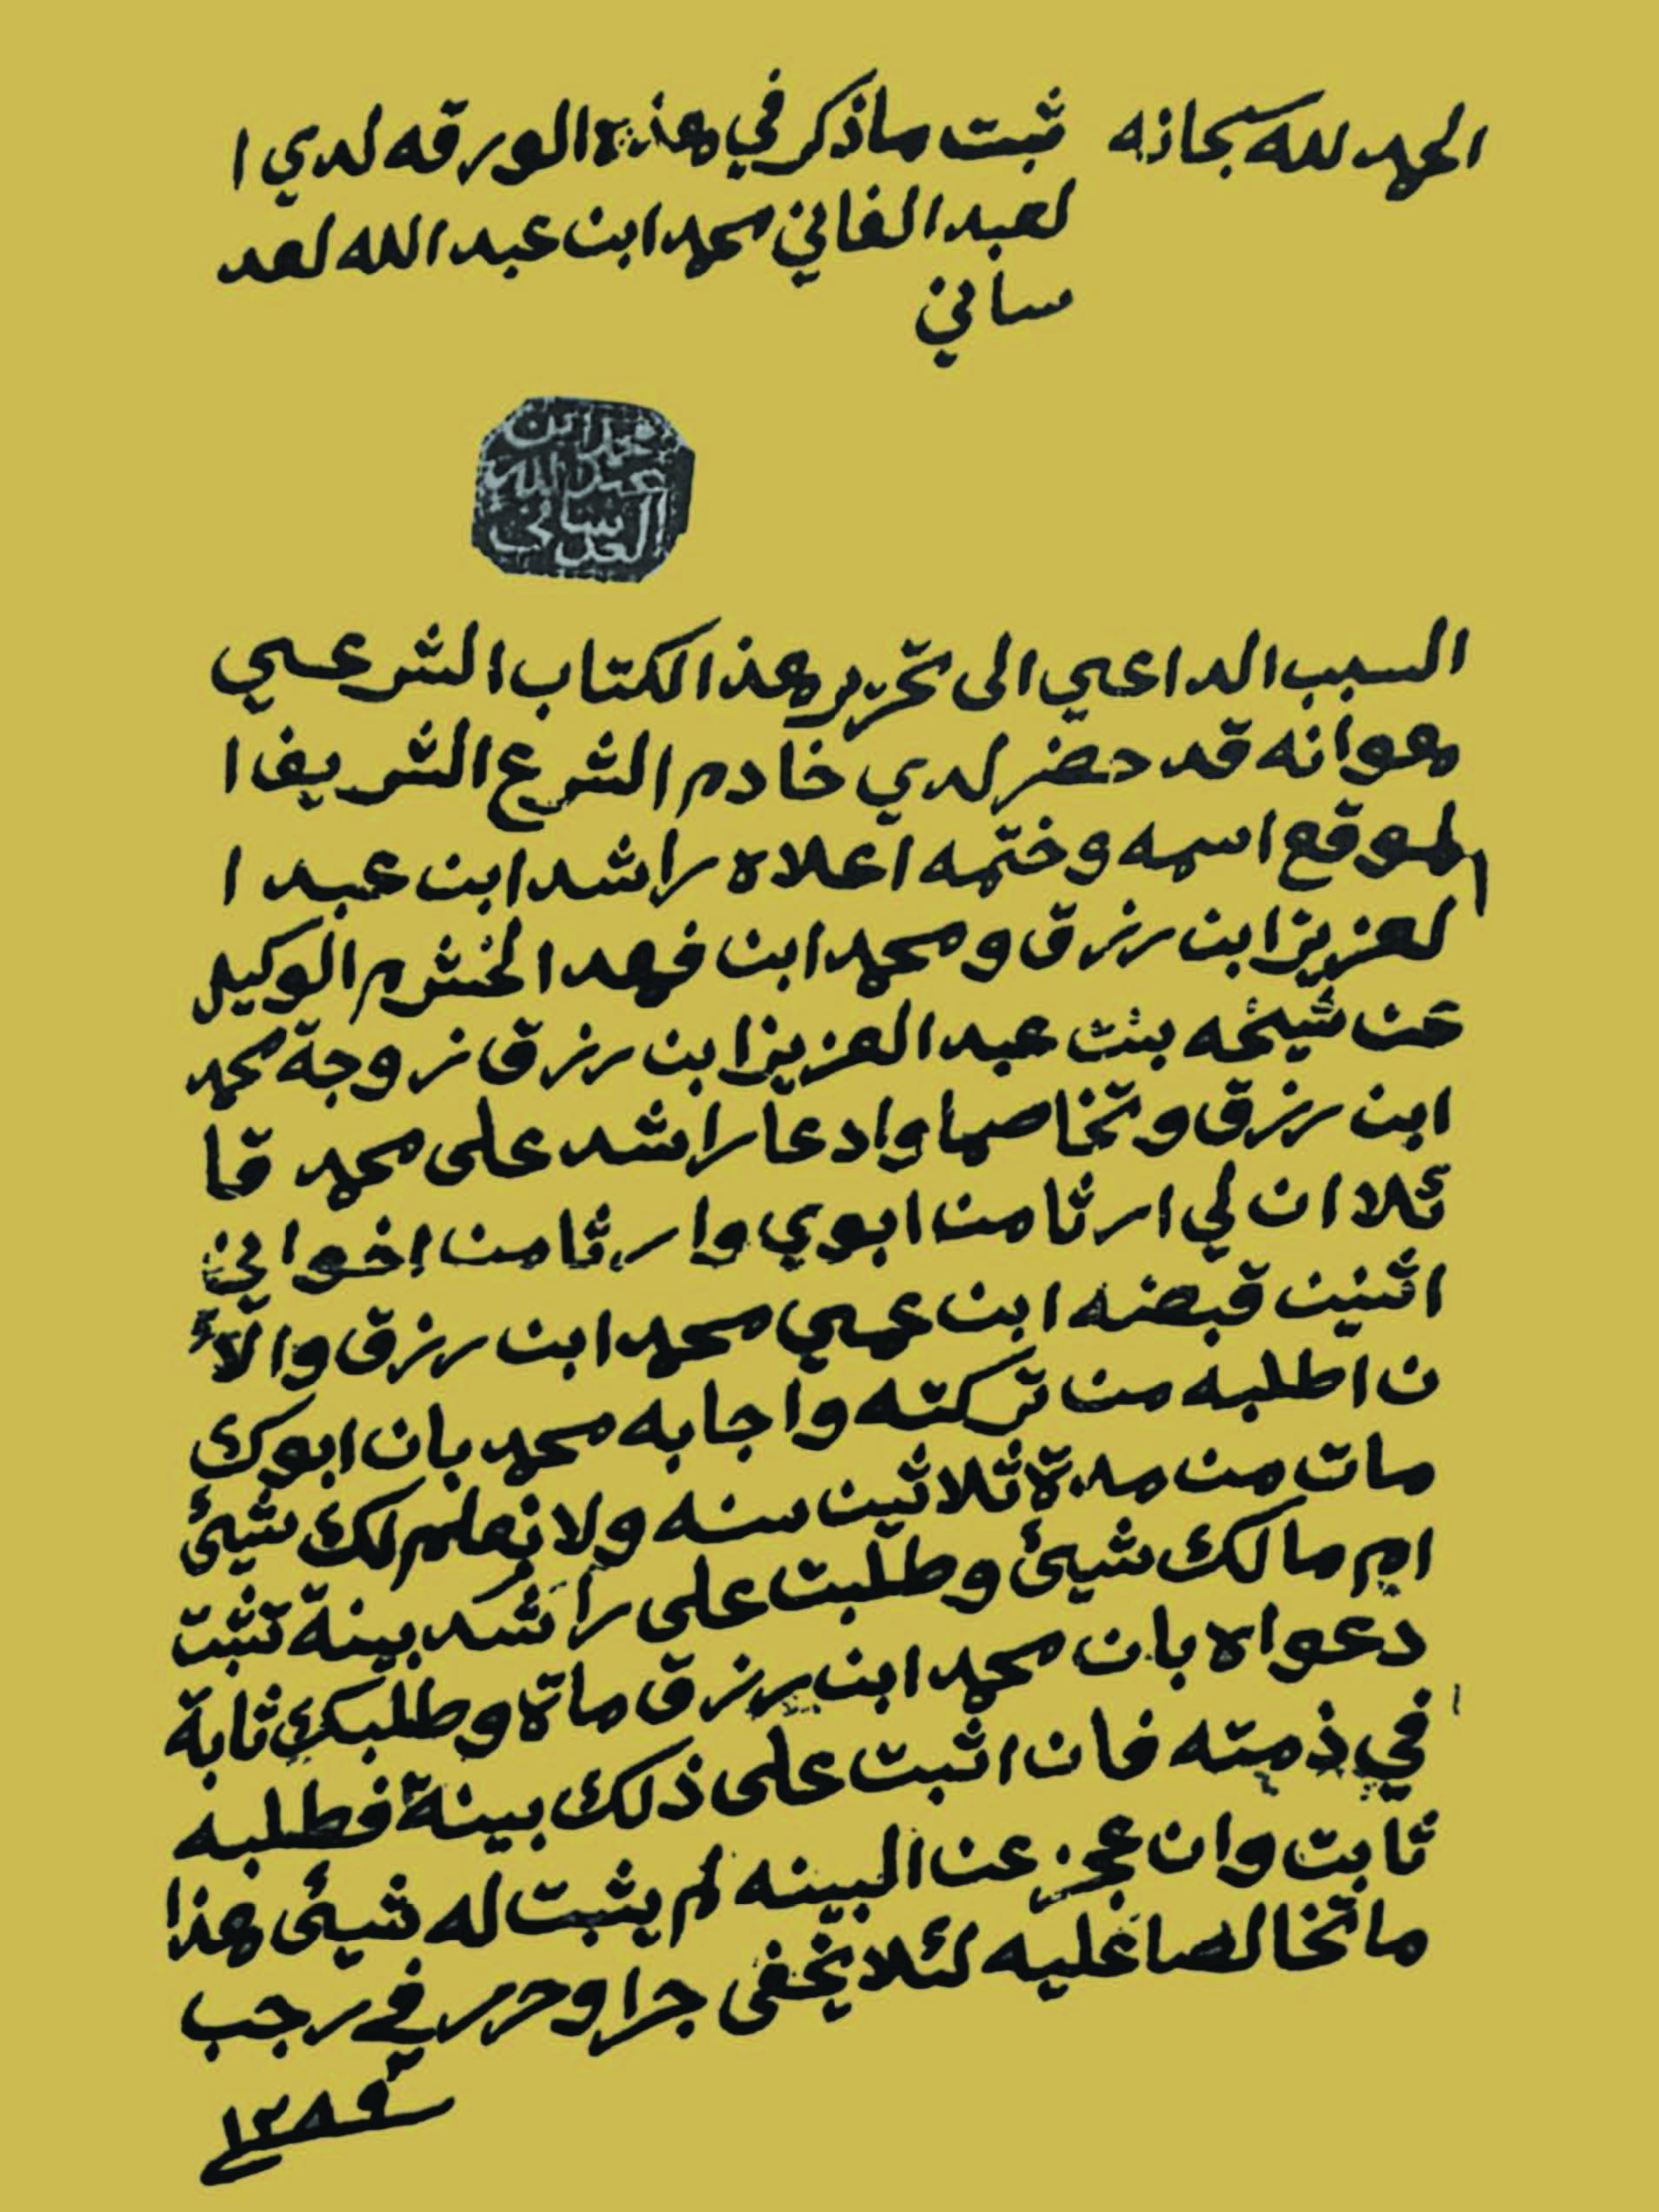 الحمد لله سبحانه ثبت ماذكر في هذه الورقه لدي ا
لعبد الفاني محمد ابن عبد الله لعد
ساني
محمد ابن
عبد الله
العدساني
السبب الداعي الى تحرير هذا الكتاب الشرعي
هو انه قد حضر لدي خادم الشرع الشريف ا
لموقع اسمه وختمه اعلاه راشد ابن عبد ا
لعزيز ابن رزق ومحمد ابن فهد الخشرم الوكيل
عن شيخه بنت عبد العزيز ابن رزق زوجة محمد
ابن رزق وتخاصما وادعا راشد على محمد قا
ئلا ان لي ارثا من ابوي وارثا من اخواني
اثنين قبضه ابن عمي محمد ابن رزق والآ
ن اطلبه من تركته واجابه محمد بان ابوك
مات من مدة ثلاثين سنه ولا نعلم لك شيئ
ام مالك شيئ وطلبت على راشد بينة تثبت
دعواه بان محمد ابن رزق ماة وطلبك ثابة
في ذمته فان اثبت على ذلك بينة فطلبه
ثابت وان عجز عن البينه لم يثبت له شيئ هذا
ما تخالصا عليه لئلا يخفى جرا وحرر في رجب
سنة ١٢٨٩